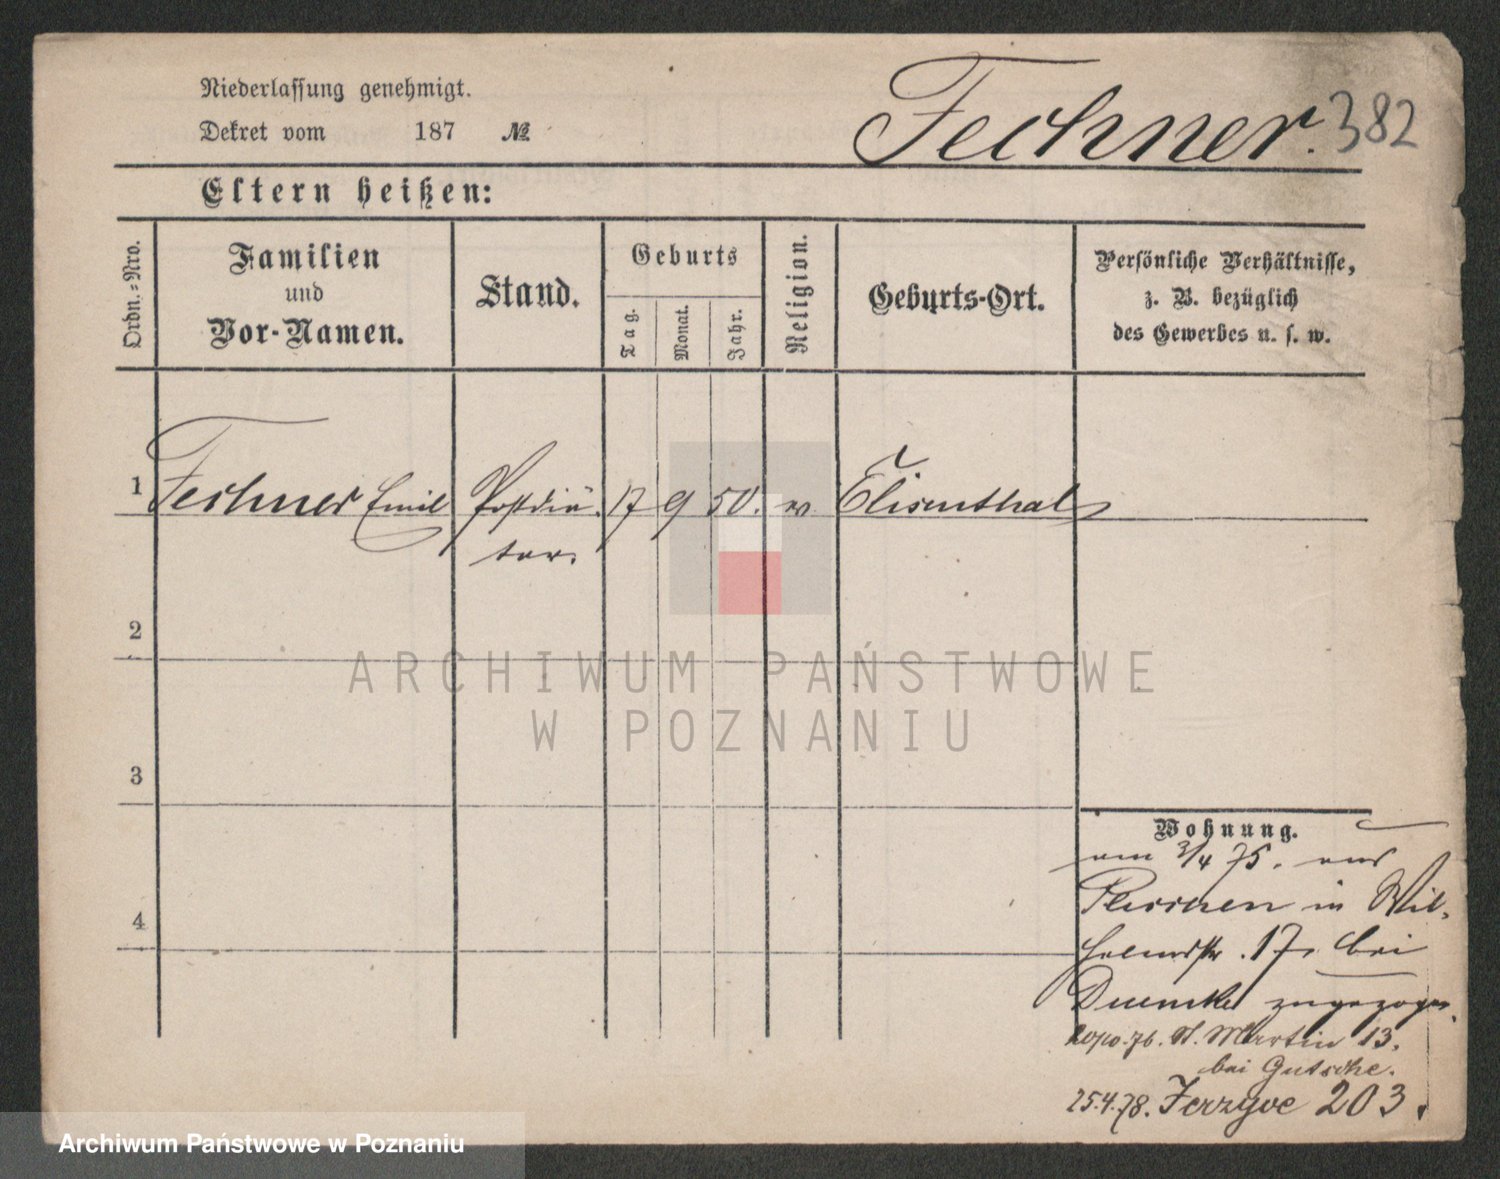 Niederlassung genehmigt.
Dekret vom 187 №
Fechner. 382
Eltern heißen:
Ordn.=Nro.
Familien
und
Vor-Namen.
Stand.
Geburts
Tag.
Monat.
Jahr.
Religion.
Geburts-Ort.
Persönliche Verhältnisse,
z. B. bezüglich
des Gewerbes u. s. w.
1 Fechner Emil Postdiä- 17 9 50. ev Elisenthal
tar.
2
3
4
Wohnung.
am 3/4 75. aus
in Wil-
helmstr. 17. bei
zugezogen.
20/10.76. St. Martin 13.
bei Gutsche.
25.4.78. Jerzyce 203.
ARCHIWUM PAŃSTWOWE
W POZNANIU
Archiwum Państwowe w Poznaniu